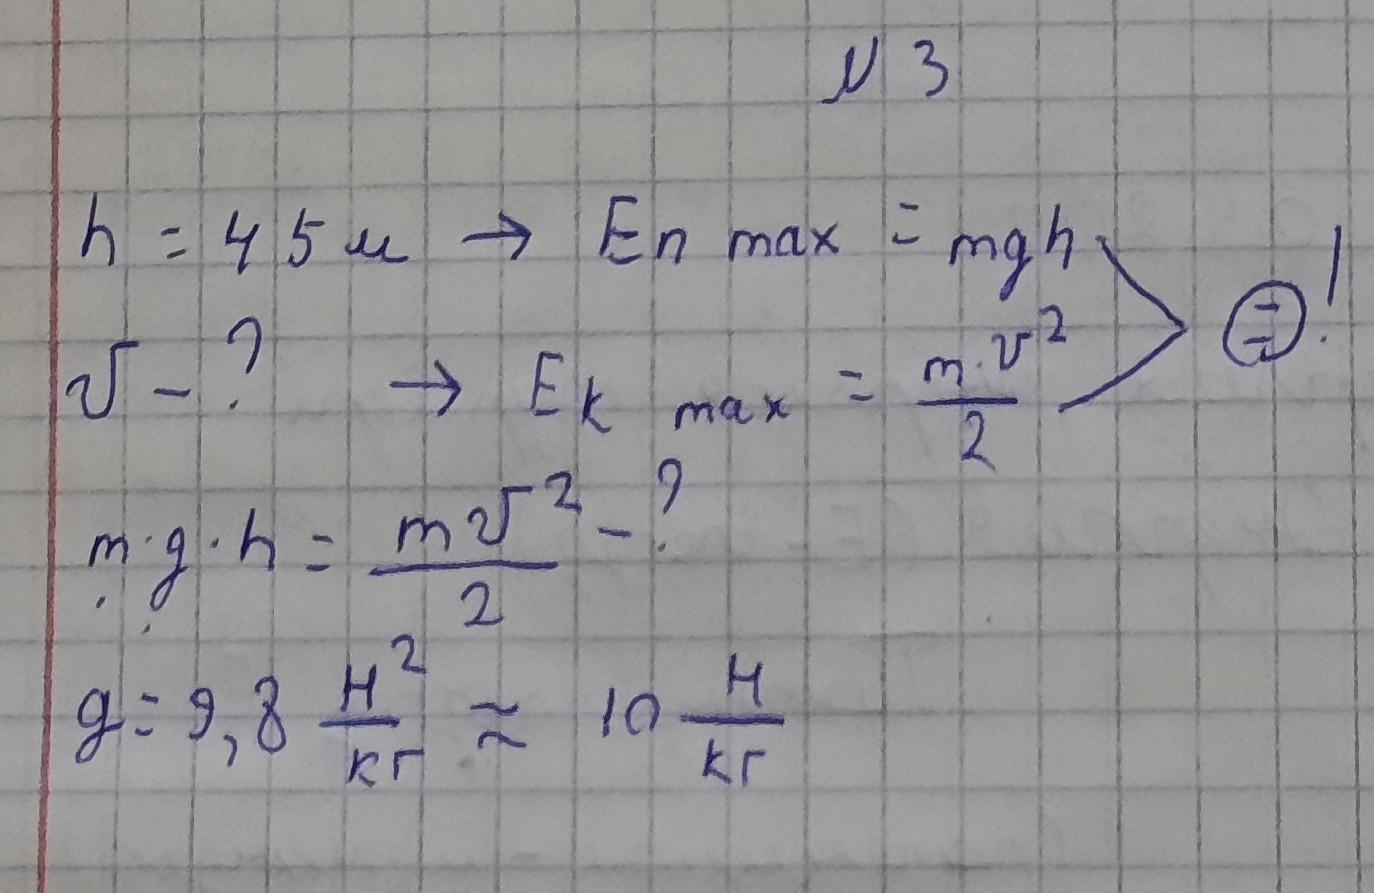 N 3
h = 45 м → Eп max = mgh
v - ? → Eк max = m·v²/2 = !
m·g·h = mv²/2 - ?
g = 9,8 Н²/кг ≈ 10 Н/кг